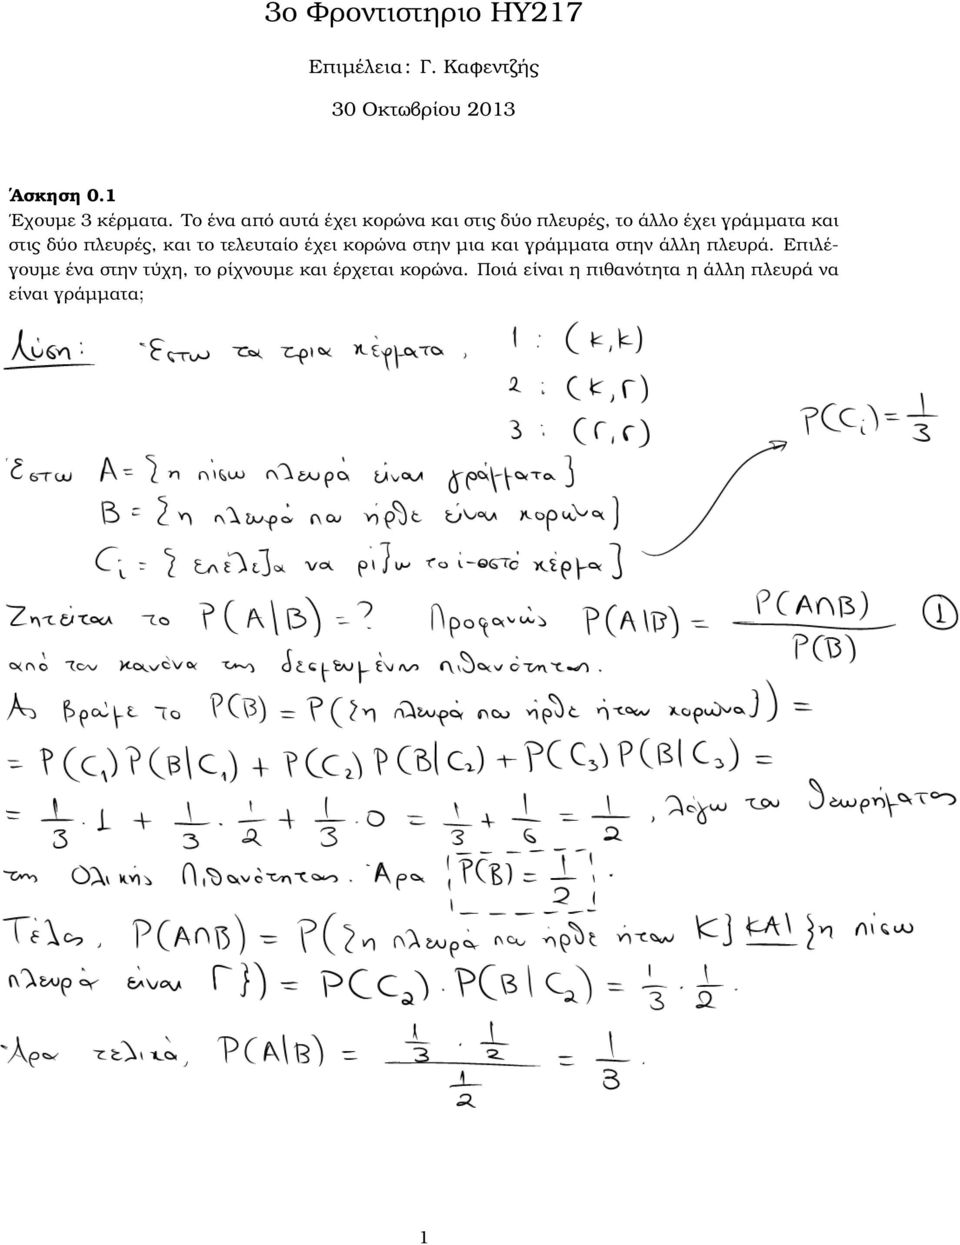 3ο Φροντιστηριο ΗΥ217
Επιμέλεια: Γ. Καφεντζής
30 Οκτωβρίου 2013
Άσκηση 0.1
Έχουμε 3 κέρματα. Το ένα από αυτά έχει κορώνα και στις δύο πλευρές, το άλλο έχει γράμματα και
στις δύο πλευρές, και το τελευταίο έχει κορώνα στην μια και γράμματα στην άλλη πλευρά. Επιλέ-
γουμε ένα στην τύχη, το ρίχνουμε και έρχεται κορώνα. Ποιά είναι η πιθανότητα η άλλη πλευρά να
είναι γράμματα;
Λύση: Έστω τα τρια κέρματα, 1 : (κ,κ)
2 : (κ,Γ)
3 : (Γ,Γ)
P(C_i) = 1/3
Έστω A = {η πίσω πλευρά είναι γράμματα}
B = {η πλευρά που ήρθε είναι κορώνα}
C_i = {επέλεξα να ρίξω το i-οστό κέρμα}
Ζητείται το P(A|B) = ? Προφανώς P(A|B) = P(A∩B) / P(B) ①
από τον κανόνα της δεσμευμένης πιθανότητας.
Ας βρούμε το P(B) = P({η πλευρά που ήρθε ήταν κορώνα}) =
= P(C_1) P(B|C_1) + P(C_2) P(B|C_2) + P(C_3) P(B|C_3) =
= 1/3 · 1 + 1/3 · 1/2 + 1/3 · 0 = 1/3 + 1/6 = 1/2, λόγω του θεωρήματος
της Ολικής Πιθανότητας. Άρα P(B) = 1/2.
Τέλος, P(A∩B) = P({η πλευρά που ήρθε ήταν Κ} ΚΑΙ {η πίσω
πλευρά είναι Γ}) = P(C_2) · P(B|C_2) = 1/3 · 1/2.
Άρα τελικά, P(A|B) = (1/3 · 1/2) / (1/2) = 1/3.
1